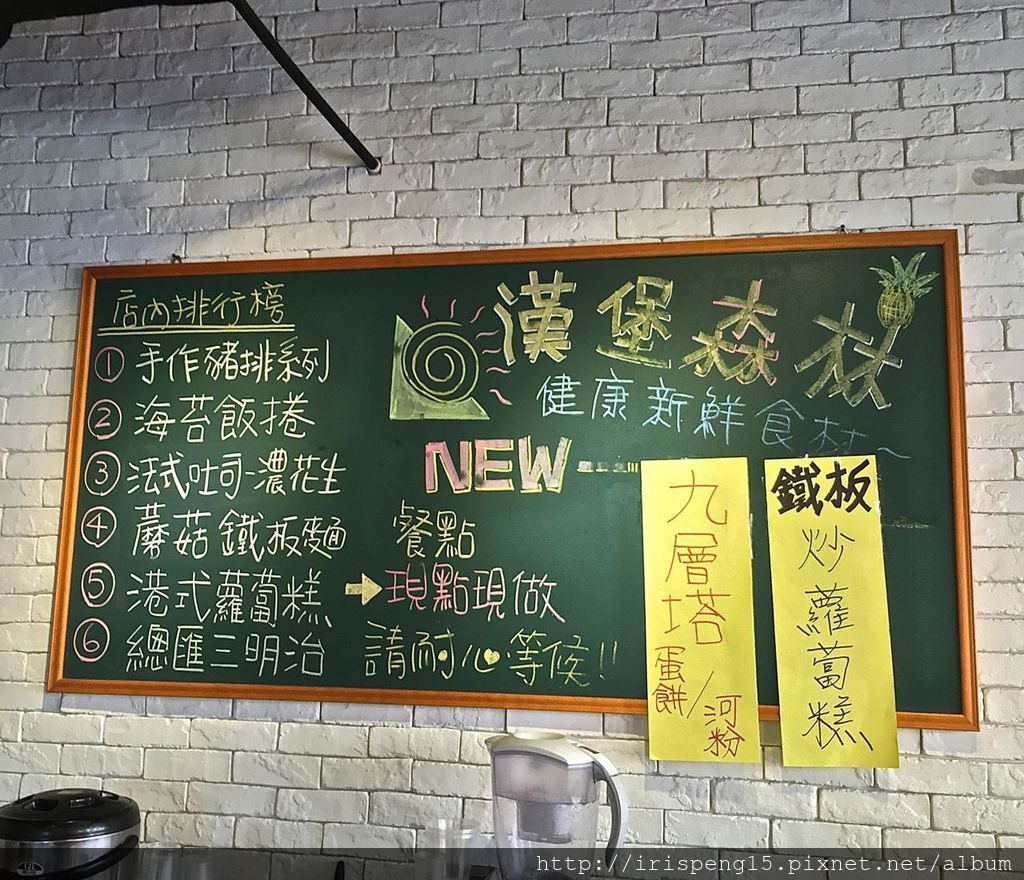 店內排行榜
① 手作豬排系列
② 海苔飯捲
③ 法式吐司-濃花生
④ 蘑菇鐵板麵
⑤ 港式蘿蔔糕
⑥ 總匯三明治
漢堡森林
健康新鮮食材~
NEW
餐點
現點現做
請耐心等候!!
九層塔
蛋餅/河粉
鐵板
炒蘿蔔糕
http://irispeng15.pixnet.net/album